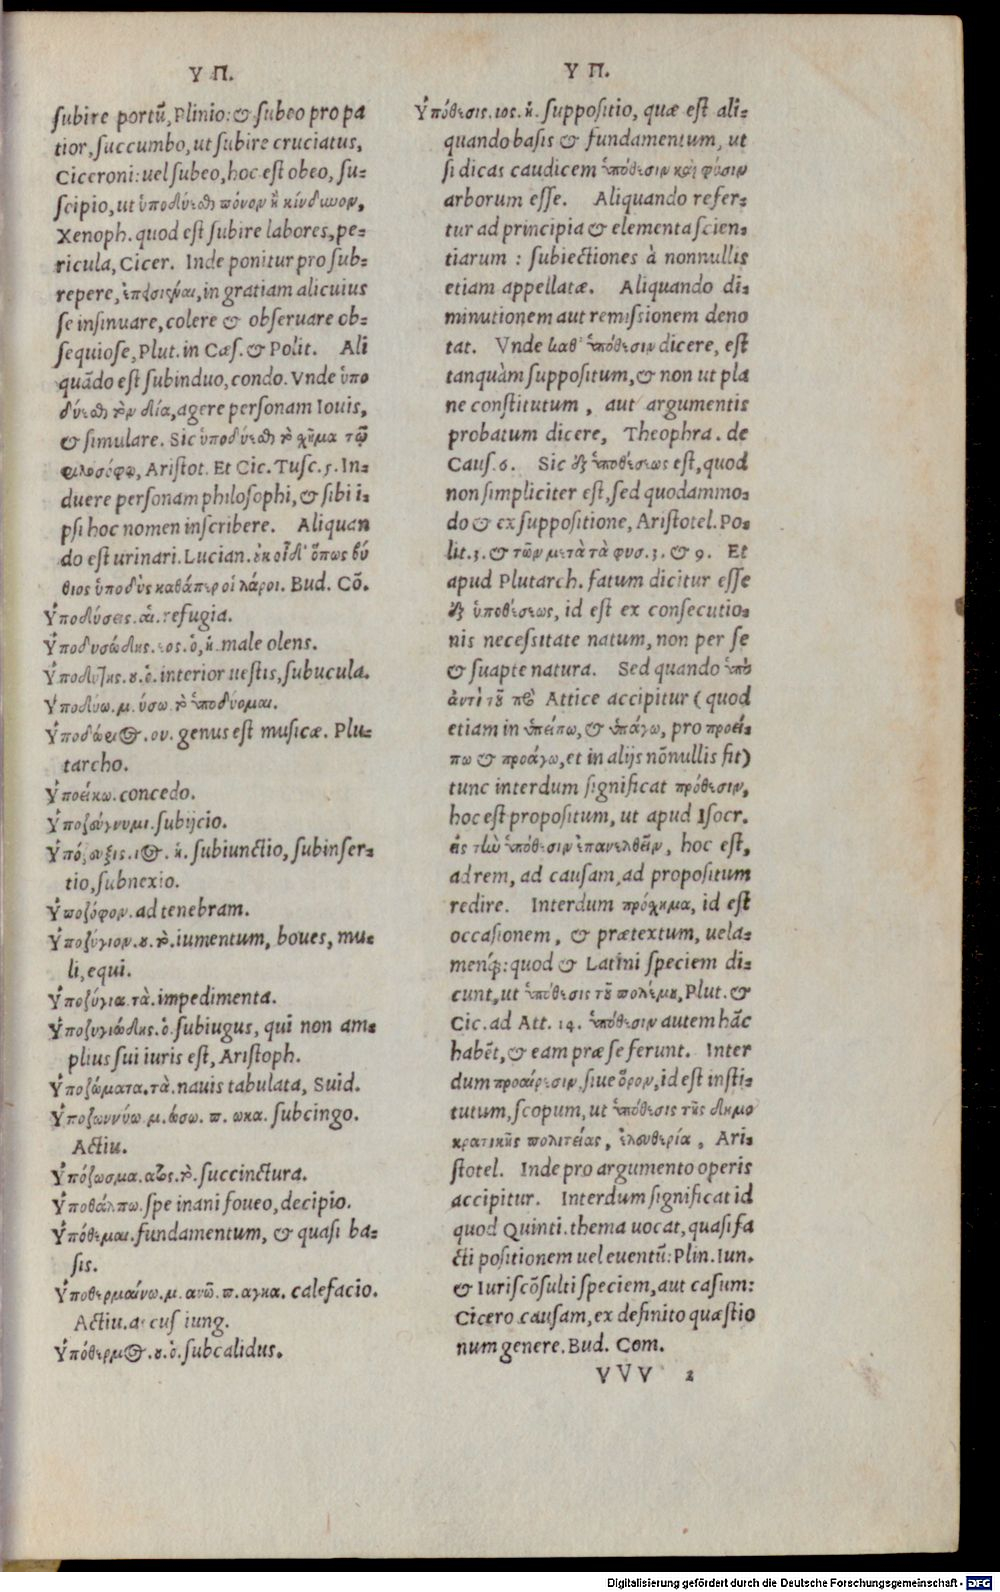 Υ Π.
subire portũ, Plinio: & subeo pro pa
tior, succumbo, ut subire cruciatus,
Ciceroni: uel subeo, hoc est obeo, su-
scipio, ut ὑποδύεσθαι πόνον ἢ κίνδυνον,
Xenoph. quod est subire labores, pe-
ricula, Cicer. Inde ponitur pro sub-
repere, ἐπεισιέναι, in gratiam alicuius
se insinuare, colere & obseruare ob-
sequiose, Plut. in Cæs. & Polit. Ali
quãdo est subinduo, condo. Vnde ὑπο
δύεσθαι τὸν δία, agere personam Iouis,
& simulare. Sic ὑποδύεσθαι τὸ χῆμα τῶ
φιλοσόφω, Aristot. Et Cic. Tusc. 5. In-
duere personam philosophi, & sibi i-
psi hoc nomen inscribere. Aliquan
do est urinari. Lucian. οὐκ οἶδ' ὅπως βύ
θιος ὑποδὺς καθάπερ οἱ λάροι. Bud. Cõ.
Ὑποδύσεις. αἱ. refugia.
Ὑποδυσώδης. εος. ὁ, ἡ. male olens.
Ὑποδύτης. ου. ὁ. interior uestis, subucula.
Ὑποδύω. μ. ύσω. τὸ ὑποδύομαι.
Ὑποδώριος. ου. genus est musicæ. Plu-
tarcho.
Ὑποείκω. concedo.
Ὑποζεύγνυμι. subijcio.
Ὑπόζευξις. ιος. ἡ. subiunctio, subinser-
tio, subnexio.
Ὑποζόφον. ad tenebram.
Ὑποζύγιον. ου. τὸ. iumentum, boues, mu-
li, equi.
Ὑποζύγια. τὰ. impedimenta.
Ὑποζυγιώδης. ὁ. subiugus, qui non am-
plius sui iuris est, Aristoph.
Ὑποζώματα. τὰ. nauis tabulata, Suid.
Ὑποζωννύω. μ. ώσω. π. ωκα. subcingo.
Actiu.
Ὑπόζωσμα. ατος. τὸ. succinctura.
Ὑποθάλπω. spe inani foueo, decipio.
Ὑπόθεμαι. fundamentum, & quasi ba-
sis.
Ὑποθερμαίνω. μ. ανῶ. π. αγκα. calefacio.
Actiu. accus iung.
Ὑπόθερμος. ου. ὁ. subcalidus.
Υ Π.
Ὑπόθεσις. ιος. ἡ. suppositio, quæ est ali-
quando basis & fundamentum, ut
si dicas caudicem ὑπόθεσιν καὶ φύσιν
arborum esse. Aliquando refer-
tur ad principia & elementa scien-
tiarum : subiectiones à nonnullis
etiam appellatæ. Aliquando di-
minutionem aut remissionem deno
tat. Vnde καθ' ὑπόθεσιν dicere, est
tanquàm suppositum, & non ut pla
ne constitutum, aut argumentis
probatum dicere, Theophra. de
Caus. 6. Sic ἐξ ὑποθέσεως est, quod
non simpliciter est, sed quodammo-
do & ex suppositione, Aristotel. Po-
lit. 3. & τῶν μετὰ τὰ φυσ. 3. & 9. Et
apud Plutarch. fatum dicitur esse
ἐξ ὑποθέσεως, id est ex consecutio-
nis necessitate natum, non per se
& suapte natura. Sed quando ὑπὸ
ἀντὶ τοῦ πρὸ Attice accipitur (quod
etiam in ὑπείπω, & ὑπάγω, pro προεί-
πω & προάγω, et in alijs nõnullis fit)
tunc interdum significat πρόθεσιν,
hoc est propositum, ut apud Isocr.
εἰς τὴν ὑπόθεσιν ἐπανελθεῖν, hoc est,
ad rem, ad causam, ad propositum
redire. Interdum πρόσχημα, id est
occasionem, & prætextum, uela-
menq́;: quod & Latini speciem di-
cunt, ut ὑπόθεσις τοῦ πολέμου, Plut. &
Cic. ad Att. 14. ὑπόθεσιν autem hãc
habẽt, & eam præ se ferunt. Inter
dum προαίρεσιν, siue ὅρον, id est insti-
tutum, scopum, ut ὑπόθεσις τῆς δημο
κρατικῆς πολιτείας, ἐλευθερία, Ari-
stotel. Inde pro argumento operis
accipitur. Interdum significat id
quod Quinti. thema uocat, quasi fa
cti positionem uel euentũ: Plin. Iun.
& Iuriscõsulti speciem, aut casum:
Cicero causam, ex definito quæstio
num genere. Bud. Com.
VVV 2
Digitalisierung gefördert durch die Deutsche Forschungsgemeinschaft - DFG